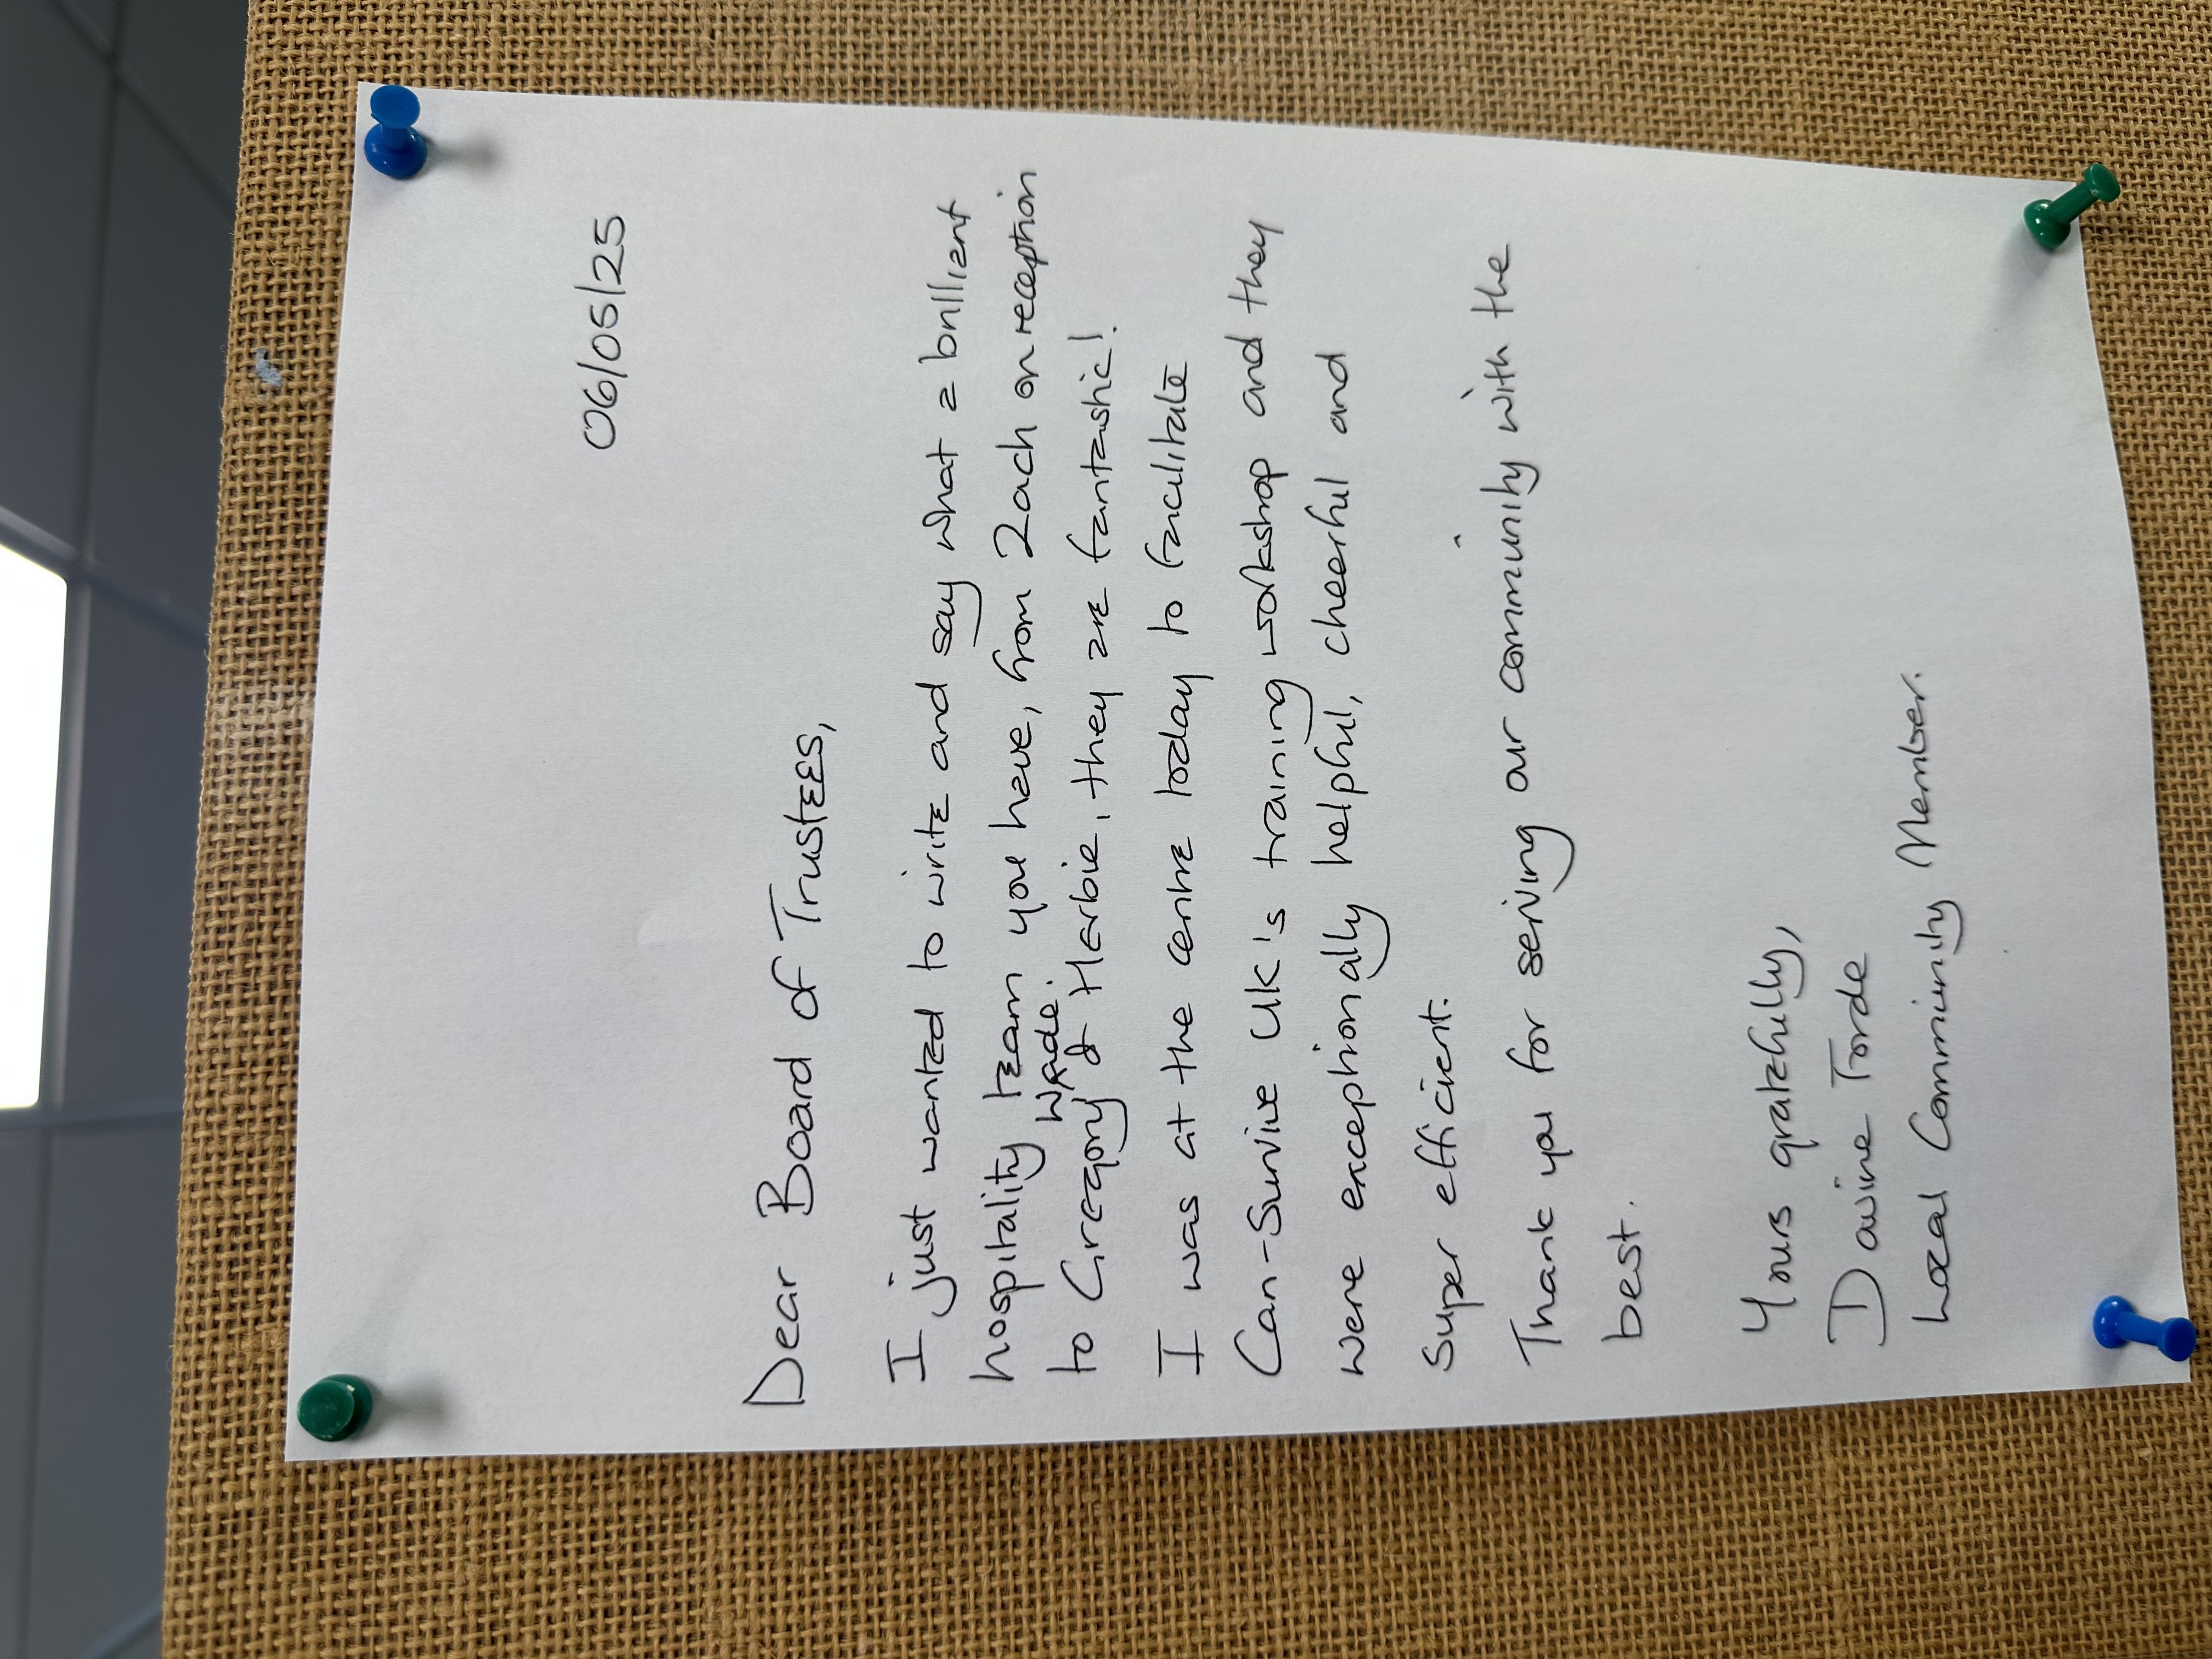 06/05/25
Dear Board of Trustees,
I just wanted to write and say what a brillient
hospitality team you have, from Zach on reception
Wade.
to Gregory & Herbie, they are fantastic!
I was at the centre today to faculitate
Can-Survive UK's training workshop and they
were exceptionally helpful, cheerful and
super efficient.
Thank you for serving our community with the
best.
Yours gratefully,
Local Community Member.